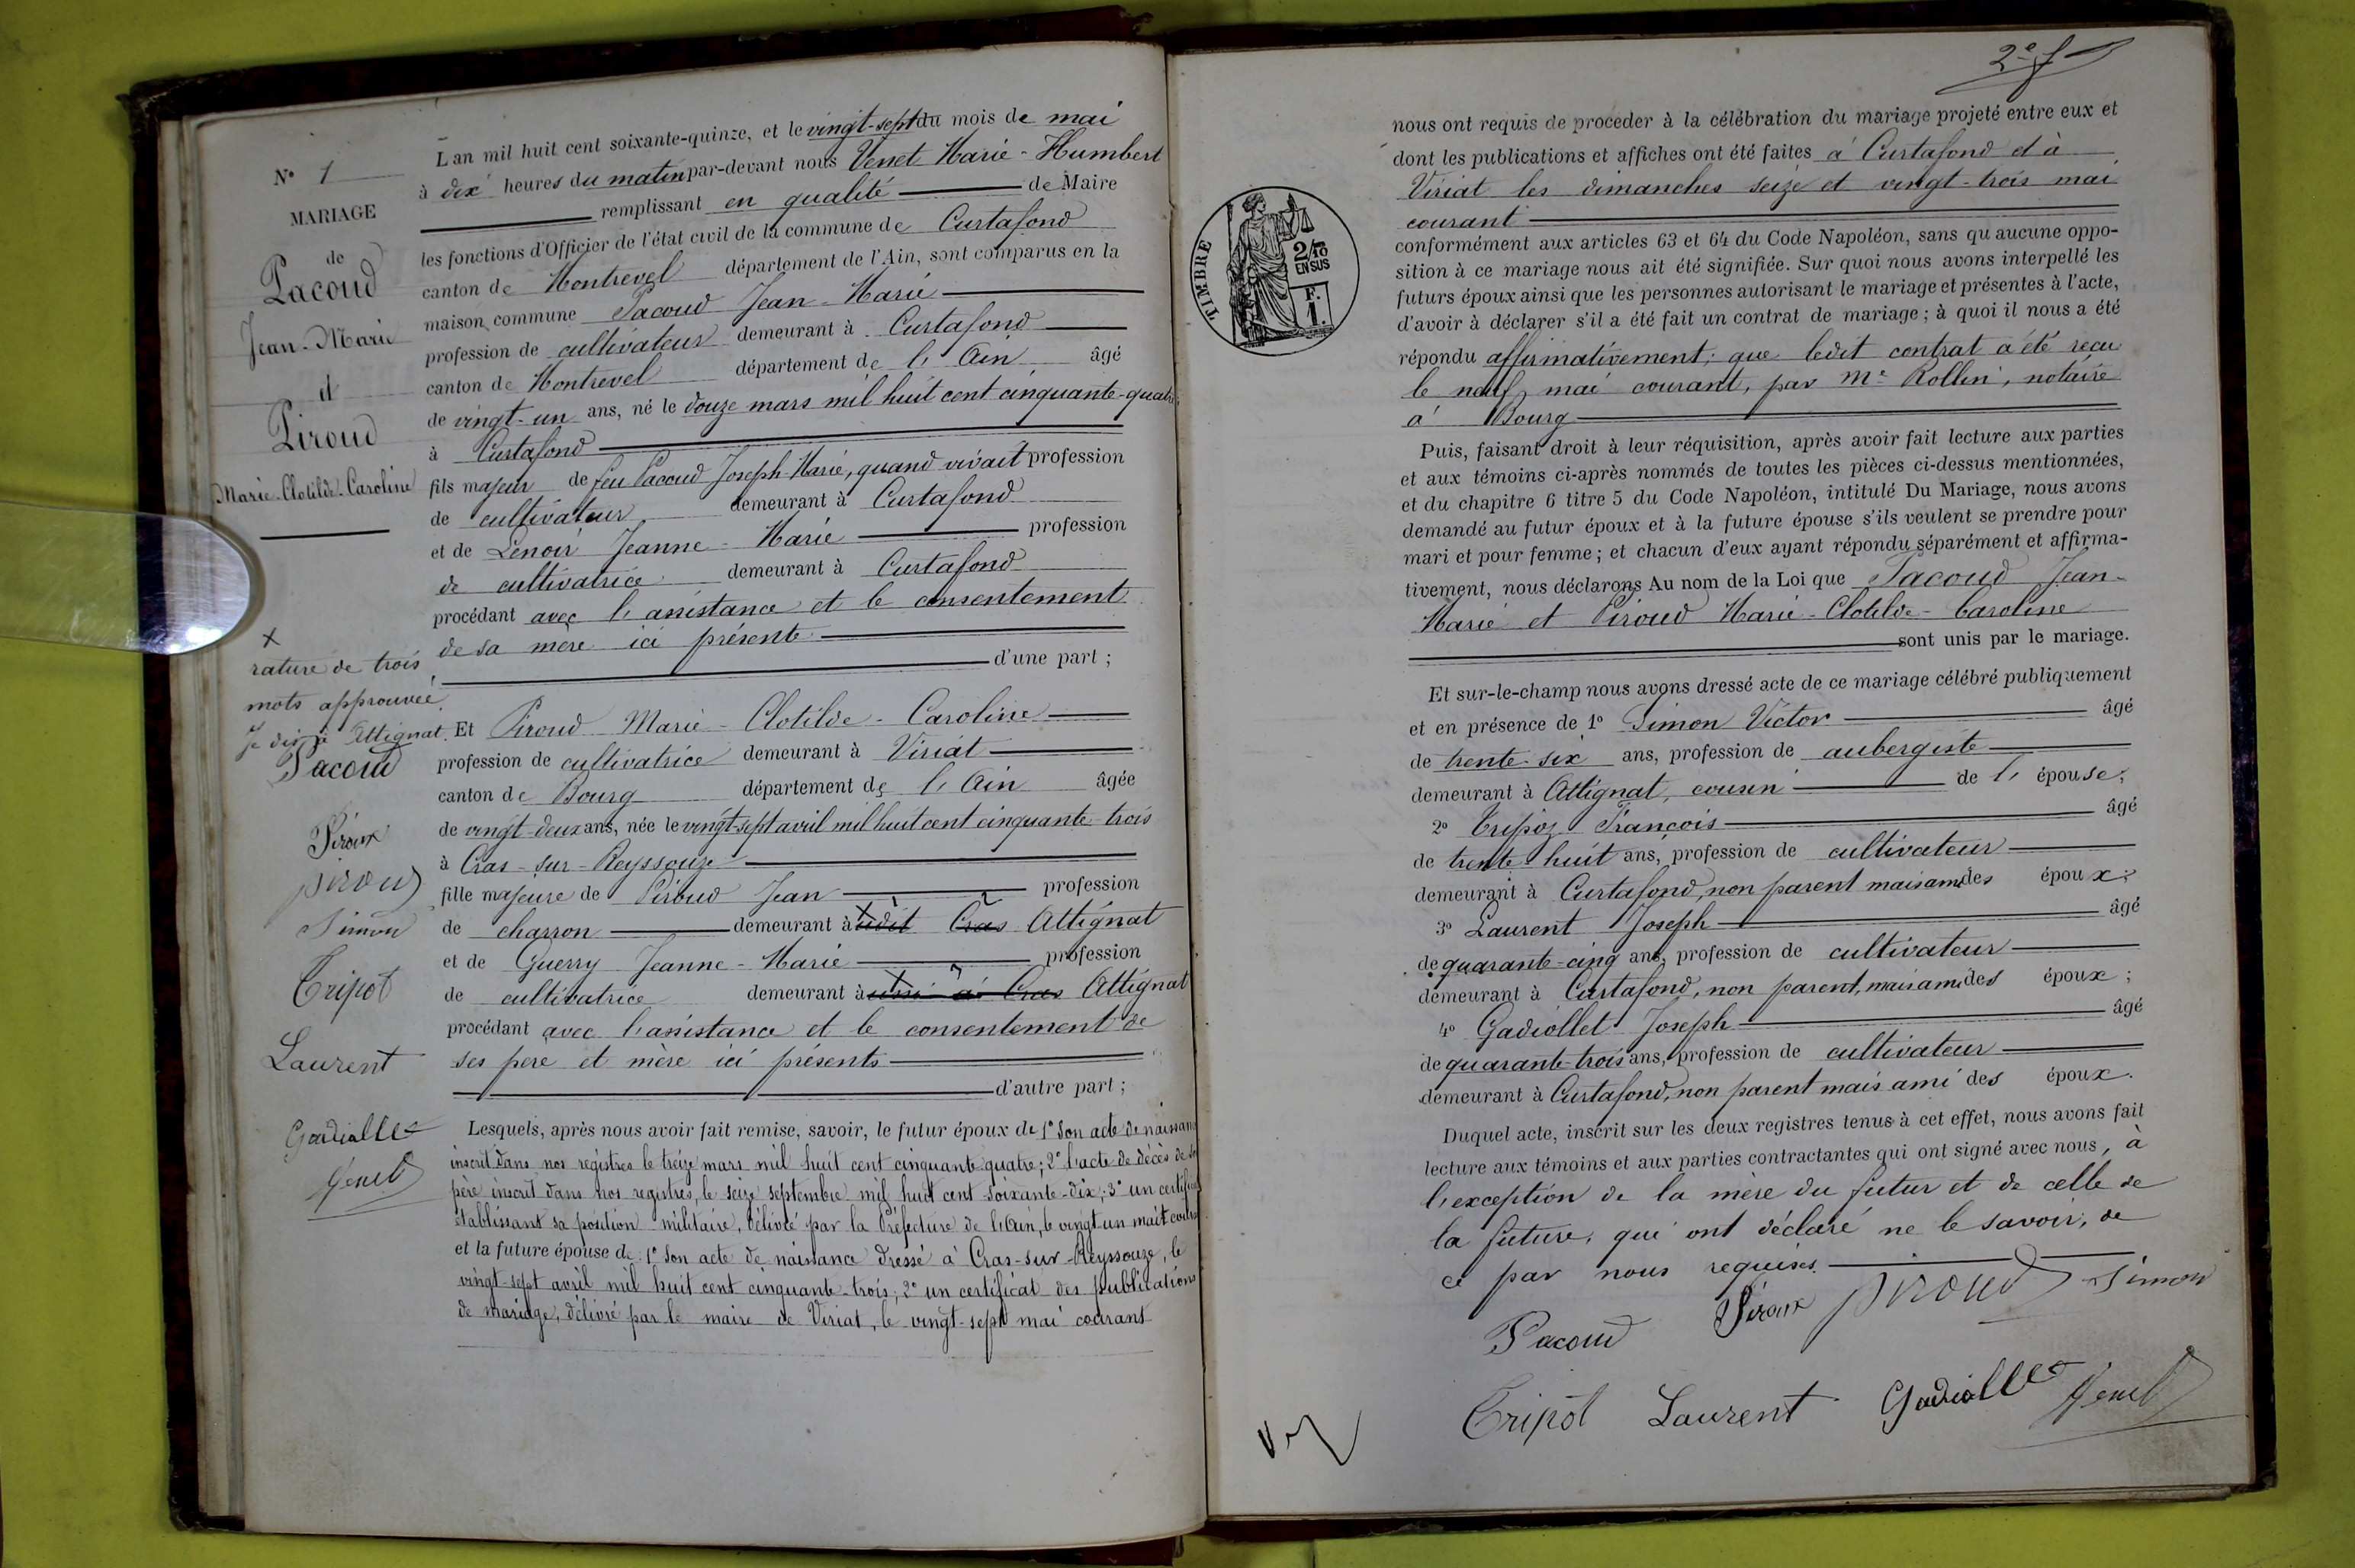 N° 1
MARIAGE
de
Pacoud
Jean-Marie
et
Piroud
Marie-Clotilde-Caroline
x
rature de trois
mots approuvée.
Je dis à Attignat.
Pacoud
Piroux
piroud
Simon
Tripot
Laurent
Gadiollet
Venet
L'an mil huit cent soixante-quinze, et le vingt-sept du mois de mai
à dix heures du matin par-devant nous Venet Marie-Humbert
remplissant en qualité de Maire
les fonctions d'Officier de l'état civil de la commune de Curtafond
canton de Montrevel département de l'Ain, sont comparus en la
maison commune Pacoud Jean-Marie
profession de cultivateur demeurant à Curtafond
canton de Montrevel département de l'Ain âgé
de vingt-un ans, né le douze mars mil huit cent cinquante-quatre
à Curtafond
fils majeur de feu Pacoud Joseph-Marie, quand vivait profession
de cultivateur demeurant à Curtafond
et de Lenoir Jeanne-Marie profession
de cultivatrice demeurant à Curtafond
procédant avec l'assistance et le consentement
de sa mère ici présente
d'une part ;
Et Piroud Marie-Clotilde-Caroline
profession de cultivatrice demeurant à Viriat
canton de Bourg département de l'Ain âgée
de vingt-deux ans, née le vingt-sept avril mil huit cent cinquante-trois
à Cras-sur-Reyssouze
fille majeure de Piroud Jean profession
de charron demeurant à x ludit Cras Attignat
et de Guerry Jeanne-Marie profession
de cultivatrice demeurant à x aussi à Cras Attignat
procédant avec l'assistance et le consentement de
ses père et mère ici présents
d'autre part ;
Lesquels, après nous avoir fait remise, savoir, le futur époux de 1° son acte de naissance
inscrit dans nos registres le treize mars mil huit cent cinquante quatre ; 2° l'acte de décès de son
père inscrit dans nos registres, le seize septembre mil huit cent soixante-dix ; 3° un certificat
établissant sa position militaire, délivré par la Préfecture de l'Ain, le vingt-un mai courant
et la future épouse de : 1° son acte de naissance dressé à Cras-sur-Reyssouze, le
vingt-sept avril mil huit cent cinquante-trois ; 2° un certificat des publications
de mariage, délivré par le maire de Viriat, le vingt-sept mai courant
2e f
TIMBRE
2/10
EN SUS
F.
1.
nous ont requis de procéder à la célébration du mariage projeté entre eux et
dont les publications et affiches ont été faites à Curtafond et à
Viriat les dimanches seize et vingt-trois mai
courant
conformément aux articles 63 et 64 du Code Napoléon, sans qu'aucune oppo-
sition à ce mariage nous ait été signifiée. Sur quoi nous avons interpellé les
futurs époux ainsi que les personnes autorisant le mariage et présentes à l'acte,
d'avoir à déclarer s'il a été fait un contrat de mariage ; à quoi il nous a été
répondu affirmativement ; que ledit contrat a été reçu
le neuf mai courant, par Me Rollin, notaire
à Bourg
Puis, faisant droit à leur réquisition, après avoir fait lecture aux parties
et aux témoins ci-après nommés de toutes les pièces ci-dessus mentionnées,
et du chapitre 6 titre 5 du Code Napoléon, intitulé Du Mariage, nous avons
demandé au futur époux et à la future épouse s'ils veulent se prendre pour
mari et pour femme ; et chacun d'eux ayant répondu séparément et affirma-
tivement, nous déclarons Au nom de la Loi que Pacoud Jean-
Marie et Piroud Marie-Clotilde-Caroline
sont unis par le mariage.
Et sur-le-champ nous avons dressé acte de ce mariage célébré publiquement
et en présence de 1° Simon Victor âgé
de trente-six ans, profession de aubergiste
demeurant à Attignat, cousin de l'épouse ;
2° Tripoz François âgé
de trente-huit ans, profession de cultivateur
demeurant à Curtafond, non parent mais ami des époux ;
3° Laurent Joseph âgé
de quarante-cinq ans, profession de cultivateur
demeurant à Curtafond, non parent, mais ami des époux ;
4° Gadiollet Joseph âgé
de quarante-trois ans, profession de cultivateur
demeurant à Curtafond, non parent mais ami des époux.
Duquel acte, inscrit sur les deux registres tenus à cet effet, nous avons fait
lecture aux témoins et aux parties contractantes qui ont signé avec nous, à
l'exception de la mère du futur et de celle de
la future, qui ont déclaré ne le savoir, de
ce par nous requises.
Pacoud Piroux piroud Simon
Tripot Laurent Gadiollet Venet